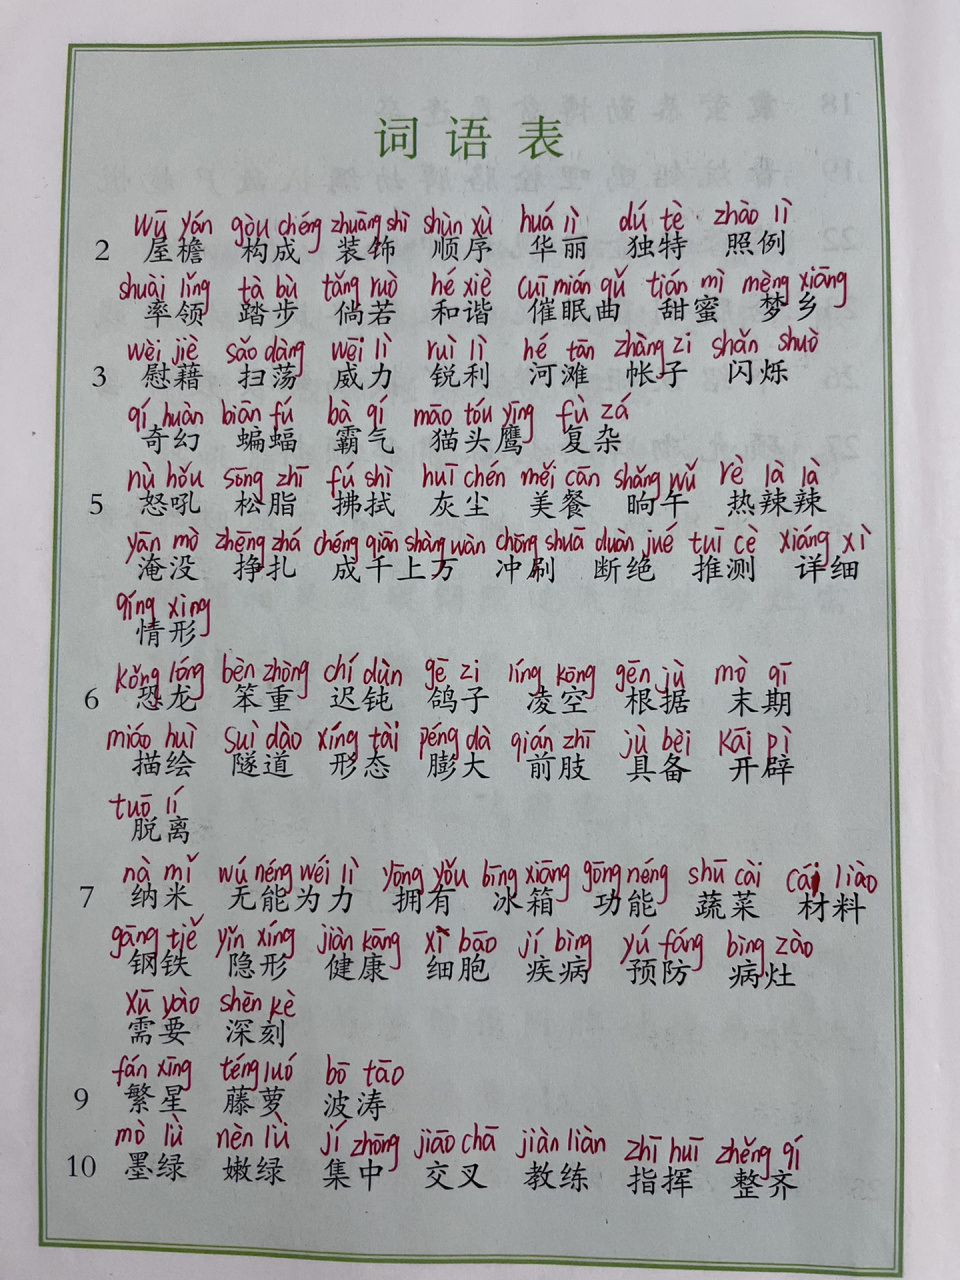 词语表
wū yán gòu chéng zhuāng shì shùn xù huá lì dú tè zhào lì
2 屋檐 构成 装饰 顺序 华丽 独特 照例
shuài lǐng tà bù tǎng ruò hé xiè cuī mián qǔ tián mì mèng xiāng
率领 踏步 倘若 和谐 催眠曲 甜蜜 梦乡
wèi jiè sǎo dàng wēi lì ruì lì hé tān zhàng zi shǎn shuò
3 慰藉 扫荡 威力 锐利 河滩 帐子 闪烁
qí huàn biān fú bà qí māo tóu yīng fù zá
奇幻 蝙蝠 霸气 猫头鹰 复杂
nù hǒu sōng zhī fú shì huī chén měi cān shǎng wǔ rè là là
5 怒吼 松脂 拂拭 灰尘 美餐 晌午 热辣辣
yān mò zhēng zhá chéng qiān shàng wàn chōng shuā duàn jué tuī cè xiáng xì
淹没 挣扎 成千上万 冲刷 断绝 推测 详细
qíng xìng
情形
kǒng lóng bèn zhòng chí dùn gē zi líng kōng gēn jù mò qī
6 恐龙 笨重 迟钝 鸽子 凌空 根据 末期
miáo huì suì dào xíng tài péng dà qián zhī jù bèi kāi pì
描绘 隧道 形态 膨大 前肢 具备 开辟
tuō lí
脱离
nà mǐ wú néng wéi lì yōng yǒu bīng xiāng gōng néng shū cài cái liào
7 纳米 无能为力 拥有 冰箱 功能 蔬菜 材料
gāng tiě yǐn xíng jiàn kāng xì bāo jí bìng yú fáng bìng zào
钢铁 隐形 健康 细胞 疾病 预防 病灶
xū yào shēn kè
需要 深刻
fán xīng téng luó bō tāo
9 繁星 藤萝 波涛
mò lǜ nèn lǜ jí zhōng jiāo chā jiàn liàn zhī huī zhěng qí
10 墨绿 嫩绿 集中 交叉 教练 指挥 整齐